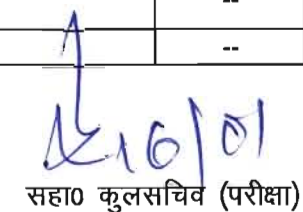 --
--
16/01
सहा0 कुलसचिव (परीक्षा)